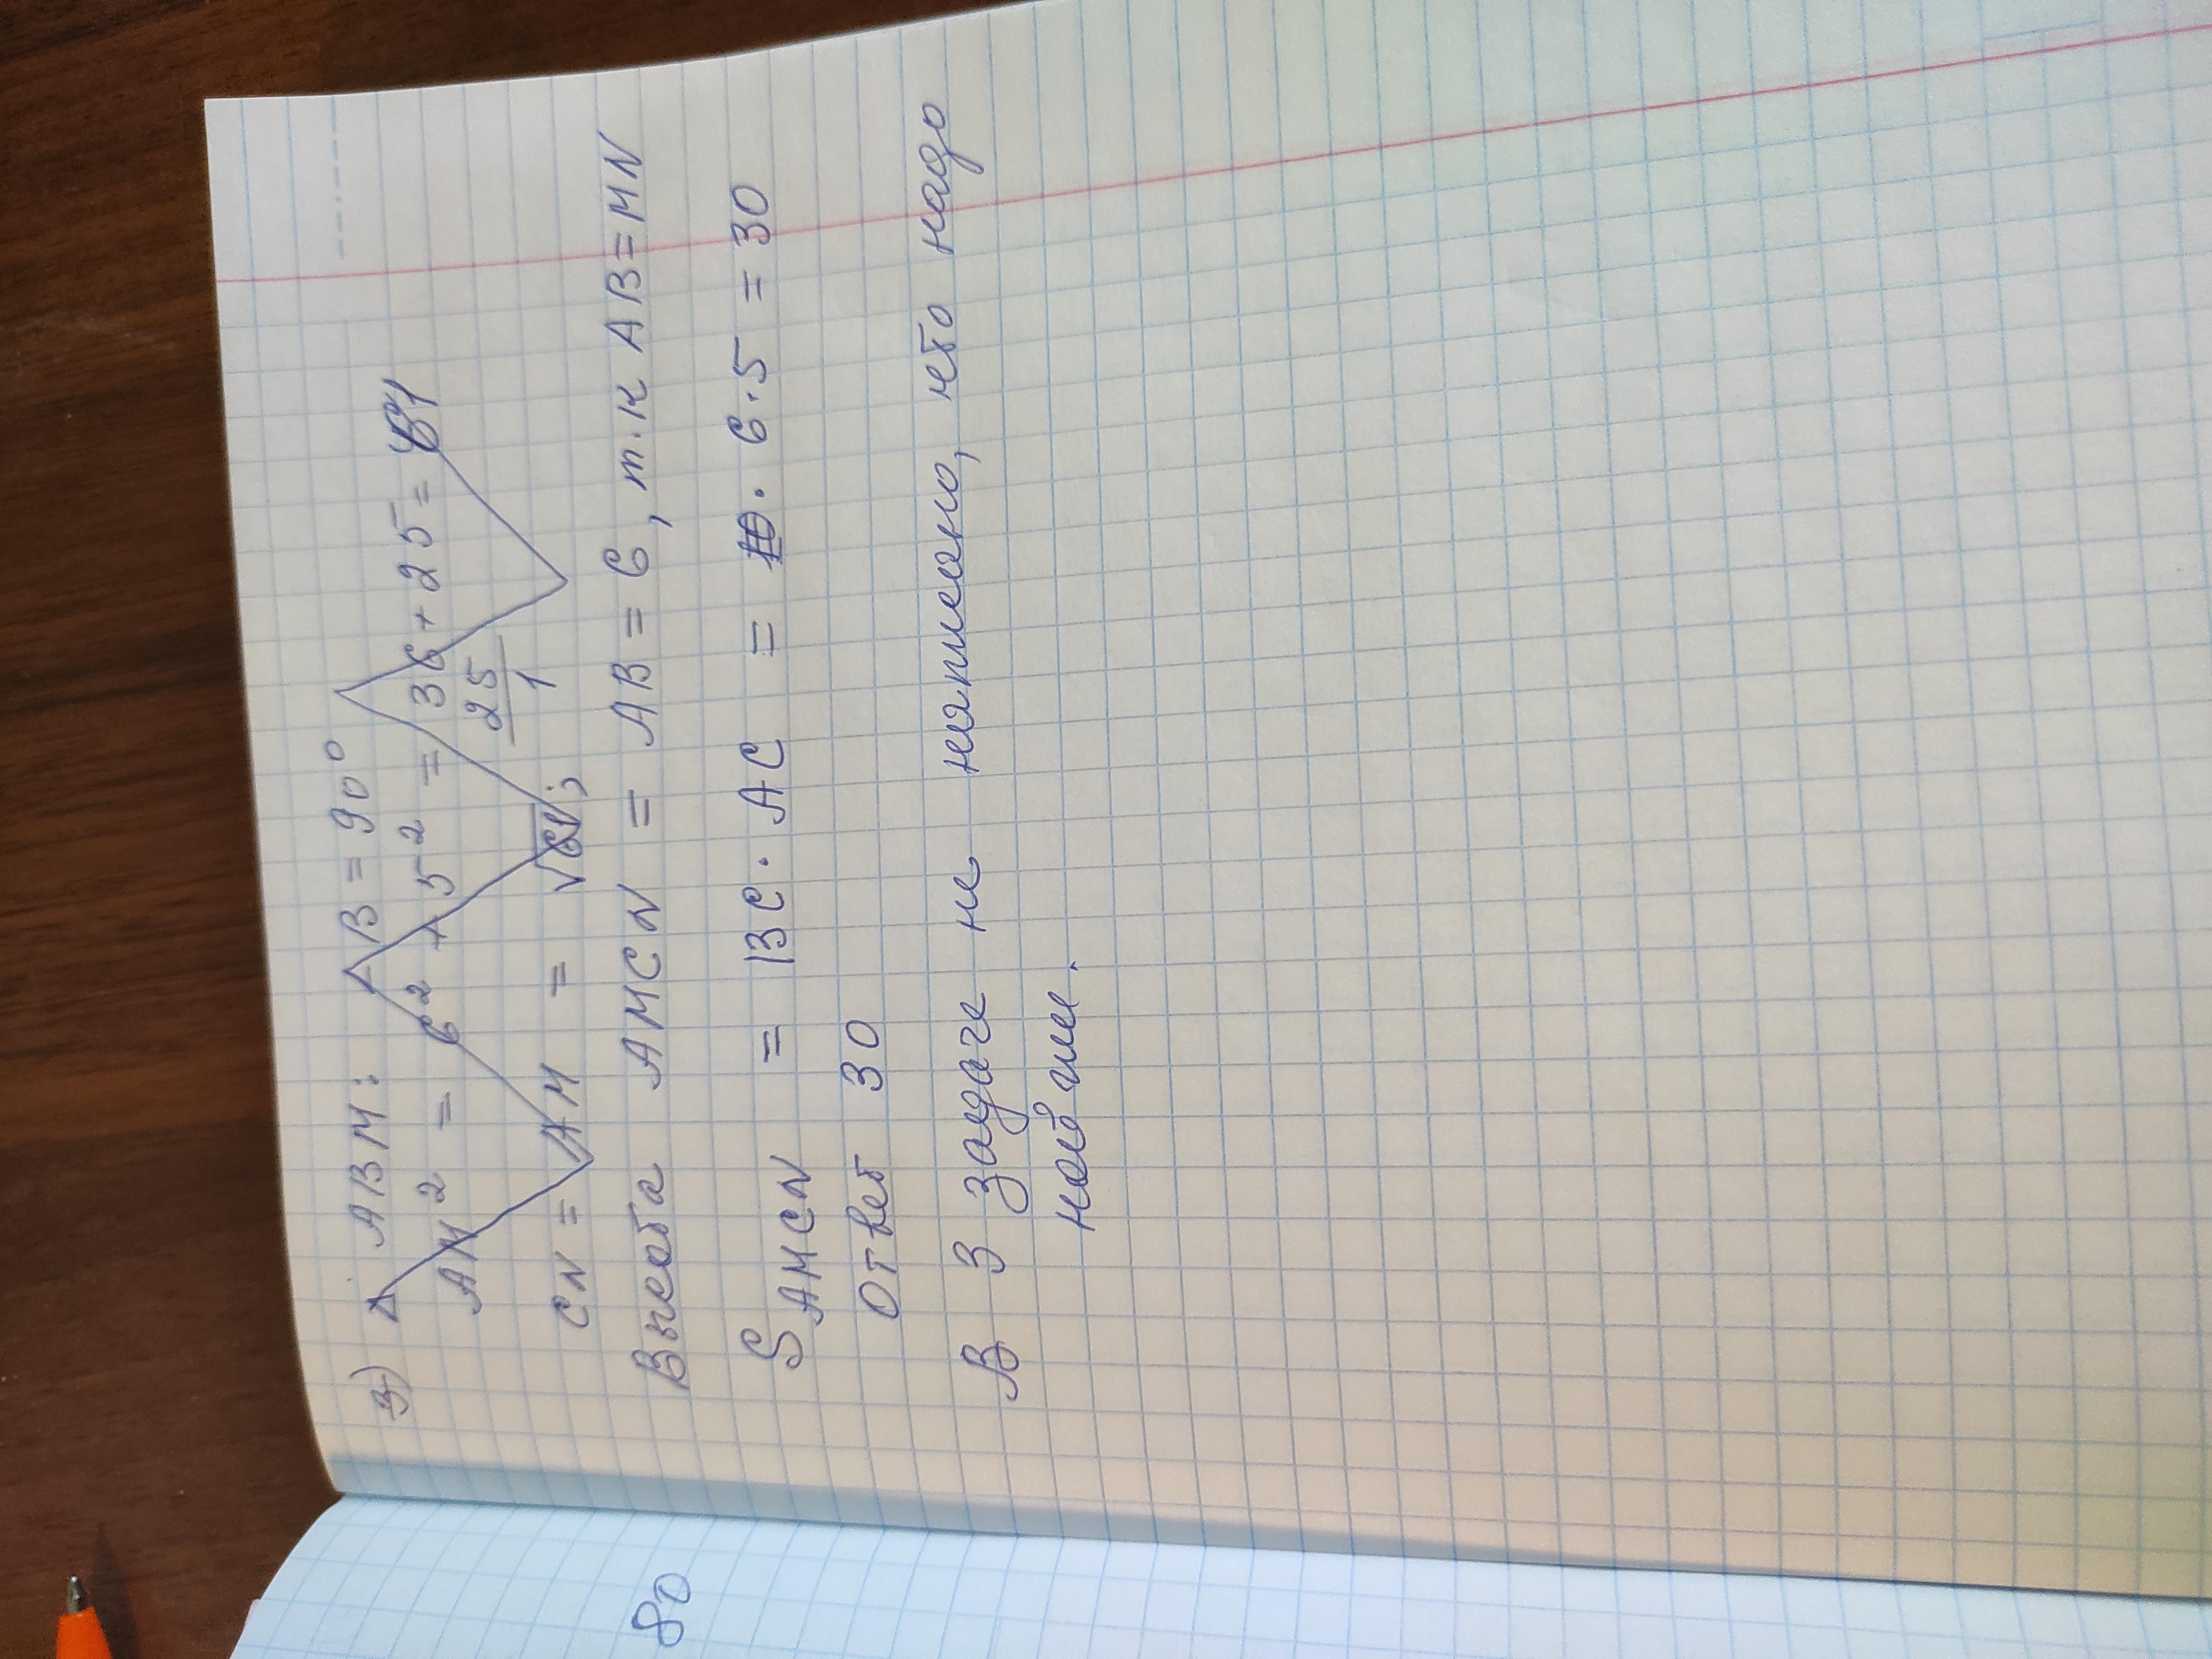 3) △ ABM: ∠B = 90°
AM² = 6² + 5² = 36 + 25 = 61
25
1
CN = AM = √61;
Высота AMCN = AB = 6, т.к AB=MN
S AMCN = BC · AC = · 6·5 = 30
Ответ 30
В 3 задаче не написано, что надо
найти.
80